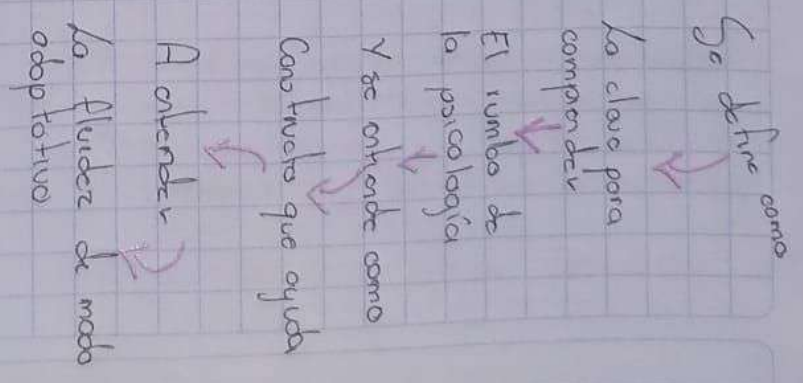 Se define como
La clave para
comprender
El rumbo de
la psicología
Y se entiende como
Constructo que ayuda
A entender
La fluidez de modo
adaptativo